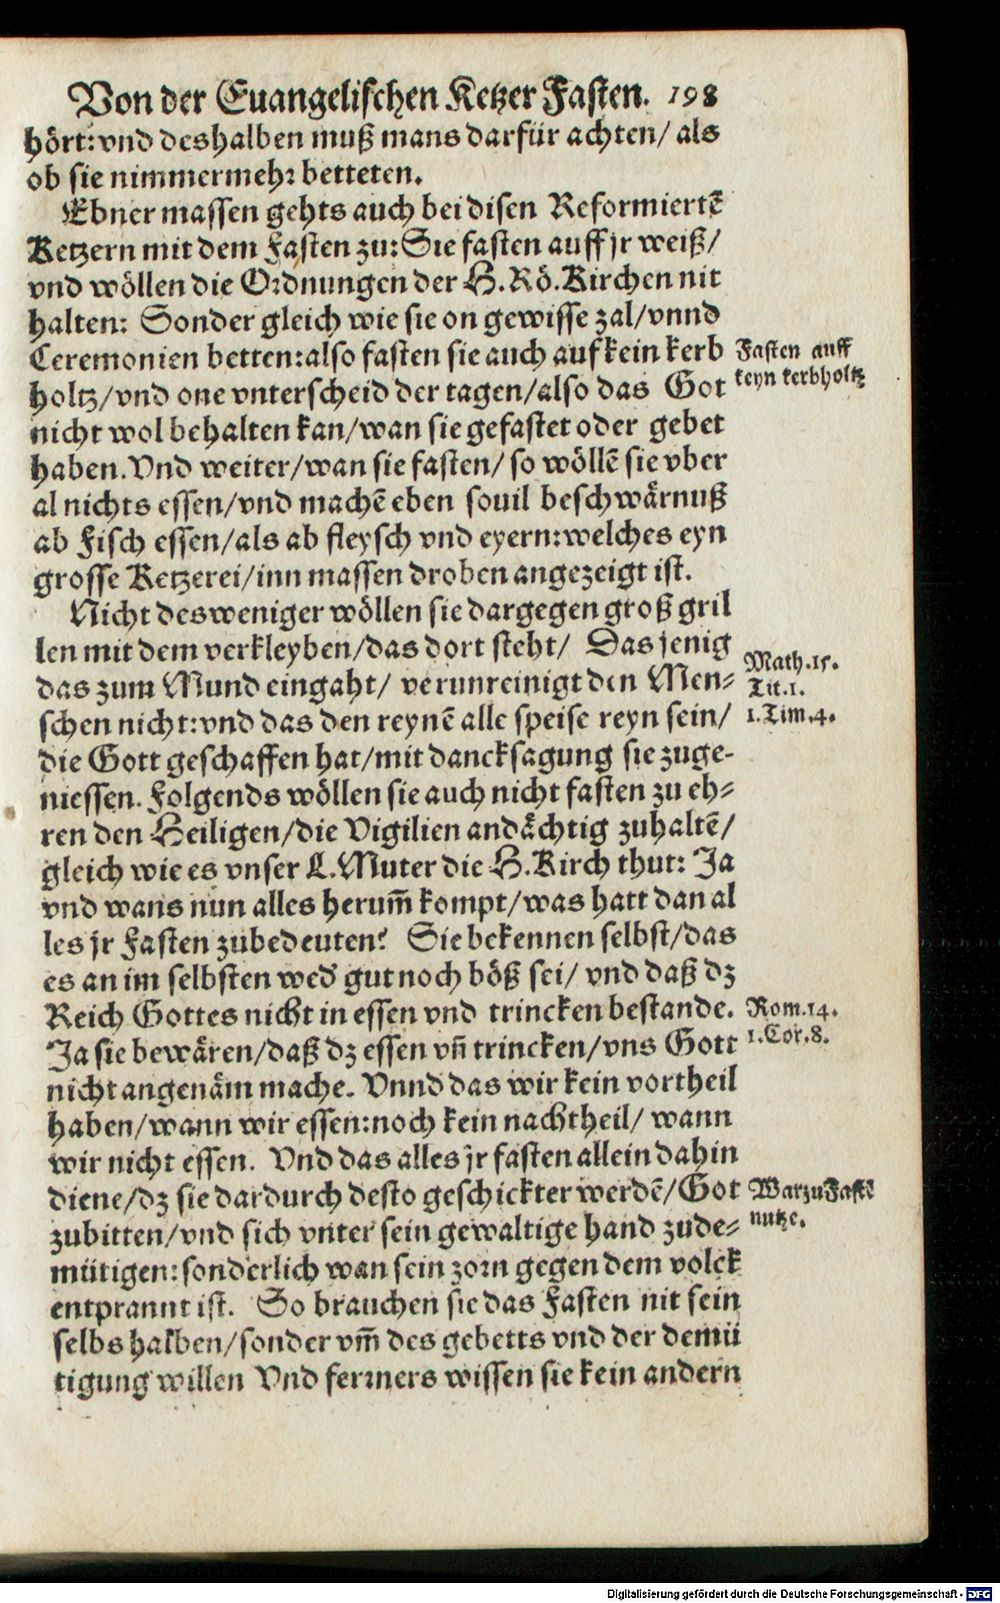 Von der Euangelischen Ketzer Fasten. 198
hört: vnd deshalben muß mans darfür achten/ als
ob sie nimmermehr betteten.
Ebner massen gehts auch bei disen Reformiertẽ
Ketzern mit dem Fasten zu: Sie fasten auff jr weiß/
vnd wöllen die Ordnungen der H. Rö. Kirchen nit
halten: Sonder gleich wie sie on gewisse zal/ vnnd
Ceremonien betten: also fasten sie auch auf kein kerb
holtz/ vnd one vnterscheid der tagen/ also das Got
nicht wol behalten kan/ wan sie gefastet oder gebet
haben. Vnd weiter/ wan sie fasten/ so wöllẽ sie vber
al nichts essen/ vnd machẽ eben souil beschwärnuß
ab Fisch essen/ als ab fleysch vnd eyern: welches eyn
grosse Ketzerei/ inn massen droben angezeigt ist.
Nicht desweniger wöllen sie dargegen groß gril
len mit dem verkleyben/ das dort steht/ Das jenig
das zum Mund eingaht/ verunreinigt den Men⸗
schen nicht: vnd das den reynẽ alle speise reyn sein/
die Gott geschaffen hat/ mit dancksagung sie zuge⸗
niessen. Folgends wöllen sie auch nicht fasten zu eh⸗
ren den Heiligen/ die Vigilien andächtig zuhaltẽ/
gleich wie es vnser L. Muter die H. Kirch thut: Ja
vnd wans nun alles herum̃ kompt/ was hatt dan al
les jr Fasten zubedeuten? Sie bekennen selbst/ das
es an im selbsten wed' gut noch böß sei/ vnd daß dz
Reich Gottes nicht in essen vnd trincken bestande.
Ja sie bewären/ daß dz essen vñ trincken/ vns Gott
nicht angenäm mache. Vnnd das wir kein vortheil
haben/ wann wir essen: noch kein nachtheil/ wann
wir nicht essen. Vnd das alles jr fasten allein dahin
diene/ dz sie dardurch desto geschickter werdẽ/ Got
zubitten/ vnd sich vnter sein gewaltige hand zude⸗
mütigen: sonderlich wan sein zorn gegen dem volck
entprannt ist. So brauchen sie das Fasten nit sein
selbs halben/ sonder vm̃ des gebetts vnd der demü
tigung willen Vnd ferrners wissen sie kein andern
Fasten auff
keyn kerbholtz
Math. 15.
Tit. 1.
1. Tim. 4.
Rom. 14.
1. Cor. 8.
Warzu Fastẽ
nutze.
Digitalisierung gefördert durch die Deutsche Forschungsgemeinschaft - DFG